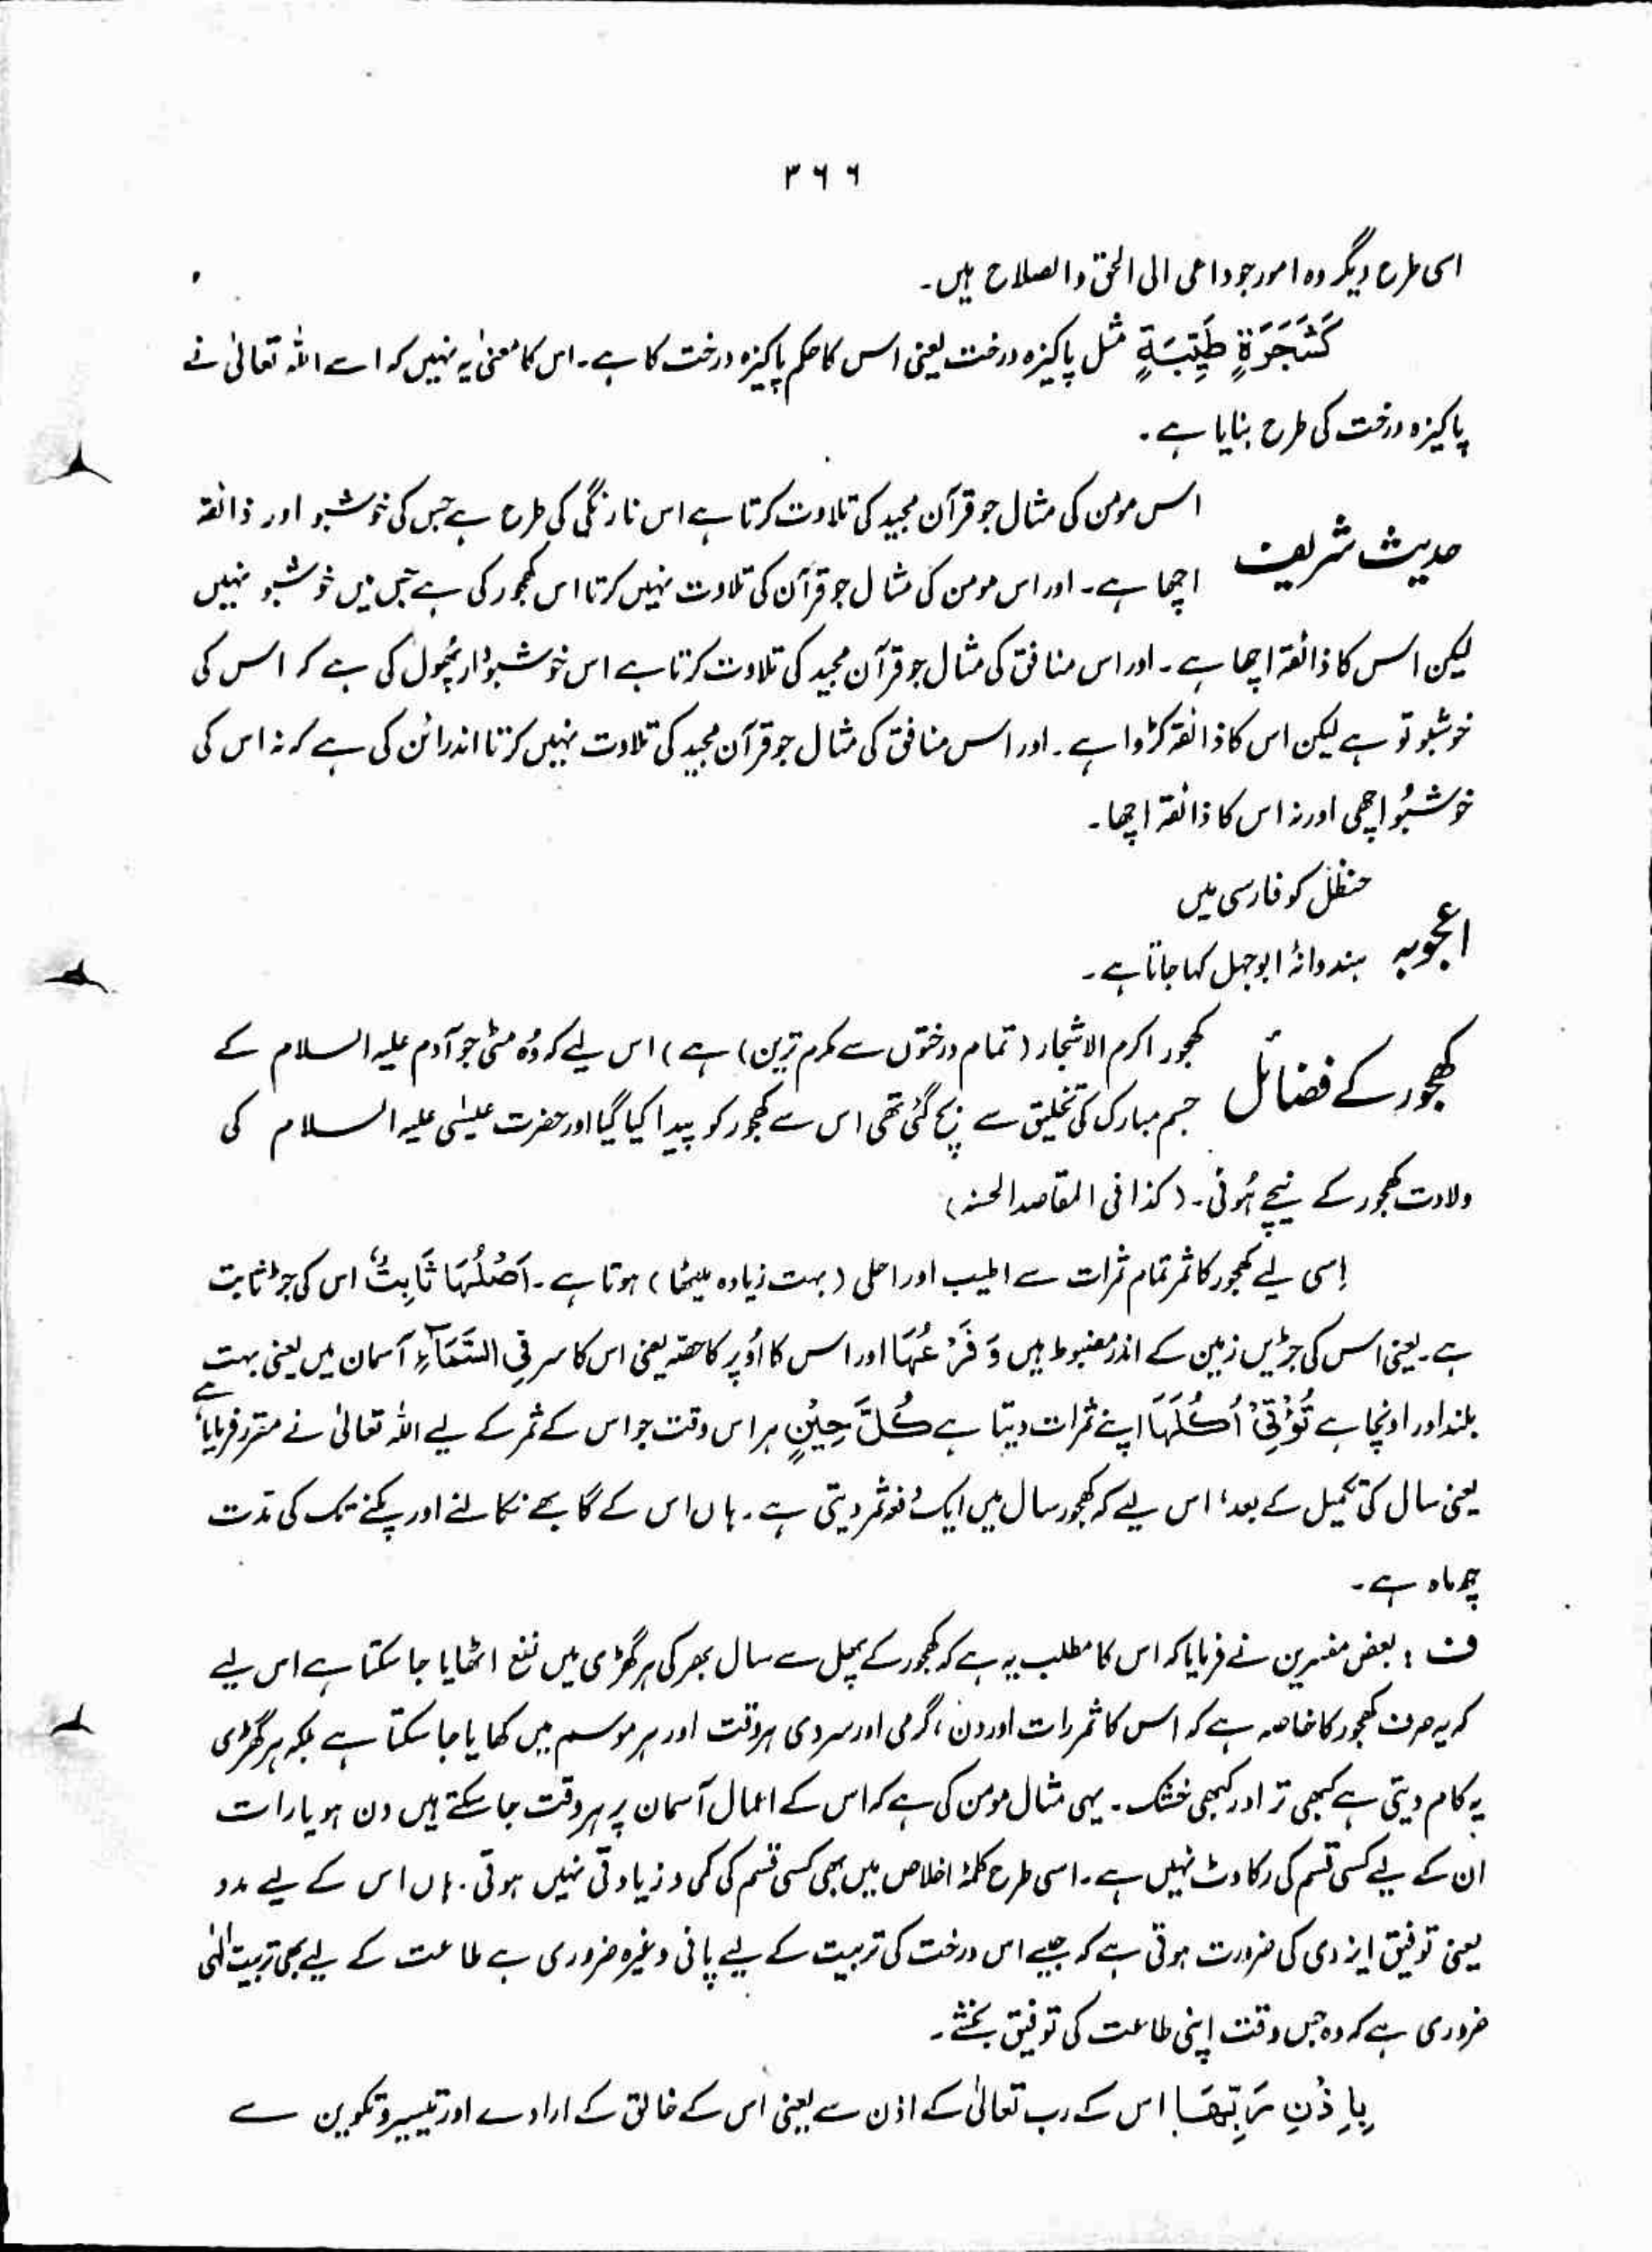 ۳۶۶
اسی طرح دیگر وہ امور جو داعی الی الحق والصلاح ہیں۔
كَشَجَرَةٍ طَيِّبَةٍ مثل پاکیزہ درخت یعنی اس کا حکم پاکیزہ درخت کا ہے۔ اس کا معنیٰ یہ نہیں کہ اسے اللہ تعالیٰ نے
پاکیزہ درخت کی طرح بنایا ہے۔
حدیث شریف
اس مومن کی مثال جو قرآن مجید کی تلاوت کرتا ہے اس نارنگی کی طرح ہے جس کی خوشبو اور ذائقہ
اچھا ہے۔ اور اس مومن کی مثال جو قرآن کی تلاوت نہیں کرتا اس کھجور کی ہے جس میں خوشبو نہیں
لیکن اس کا ذائقہ اچھا ہے۔ اور اس منافق کی مثال جو قرآن مجید کی تلاوت کرتا ہے اس خوشبودار پھُول کی ہے کہ اس کی
خوشبو تو ہے لیکن اس کا ذائقہ کڑوا ہے۔ اور اس منافق کی مثال جو قرآن مجید کی تلاوت نہیں کرتا اندرائن کی ہے کہ نہ اس کی
خوشبُو اچھی اور نہ اس کا ذائقہ اچھا۔
اعجوبہ
حنظل کو فارسی میں
ہندوانۂ ابوجہل کہا جاتا ہے۔
کھجور کے فضائل
کھجور اکرم الاشجار (تمام درختوں سے مکرم ترین) ہے) اس لیے کہ وُہ مٹی جو آدم علیہ السلام کے
جسم مبارک کی تخلیق سے بچ گئی تھی اس سے کھجور کو پیدا کیا گیا اور حضرت عیسٰی علیہ السلام کی
ولادت کھجور کے نیچے ہُوئی۔ (کذا فی المقاصد الحسنہ)
اِسی لیے کھجور کا ثمر تمام ثمرات سے اطیب اور احلی (بہت زیادہ میٹھا) ہوتا ہے۔ اَصْلُهَا ثَابِتٌ اس کی جڑ ثابت
ہے۔ یعنی اس کی جڑیں زمین کے اندر مضبوط ہیں وَ فَرْعُهَا اور اس کا اُوپر کا حصّہ یعنی اس کا سر فِی السَّمَآءِ آسمان میں یعنی بہت
بلند اور اونچا ہے تُؤْتِيْٓ اُكُلَهَا اپنے ثمرات دیتا ہے كُلَّ حِيْنٍ ہر اس وقت جو اس کے ثمر کے لیے اللہ تعالیٰ نے مقرر فرمایا ہے
یعنی سال کی تکمیل کے بعد، اس لیے کہ کھجور سال میں ایک دفعہ ثمر دیتی ہے۔ ہاں اس کے گابھے نکالنے اور پکنے تک کی مدت
چھ ماہ ہے۔
ف : بعض مفسرین نے فرمایا کہ اس کا مطلب یہ ہے کہ کھجور کے پھل سے سال بھر کی ہر گھڑی میں نفع اٹھایا جا سکتا ہے اس لیے
کہ یہ صرف کھجور کا خاصہ ہے کہ اس کا ثمر رات اور دن، گرمی اور سردی ہر وقت اور ہر موسم میں کھایا جا سکتا ہے بلکہ ہر گھڑی
یہ کام دیتی ہے کبھی تر اور کبھی خشک۔ یہی مثال مومن کی ہے کہ اس کے اعمال آسمان پر ہر وقت جا سکتے ہیں دن ہو یا رات
ان کے لیے کسی قسم کی رکاوٹ نہیں ہے۔ اسی طرح کلمۂ اخلاص میں بھی کسی قسم کی کمی و زیادتی نہیں ہوتی۔ ہاں اس کے لیے مدد
یعنی توفیق ایزدی کی ضرورت ہوتی ہے کہ جیسے اس درخت کی تربیت کے لیے پانی وغیرہ ضروری ہے طاعت کے لیے بھی تربیت الٰہی
ضروری ہے کہ وہ جس وقت اپنی طاعت کی توفیق بخشے۔
بِاِذْنِ رَبِّهَا اس کے رب تعالیٰ کے اذن سے یعنی اس کے خالق کے ارادے اور تیسیر و تکوین سے